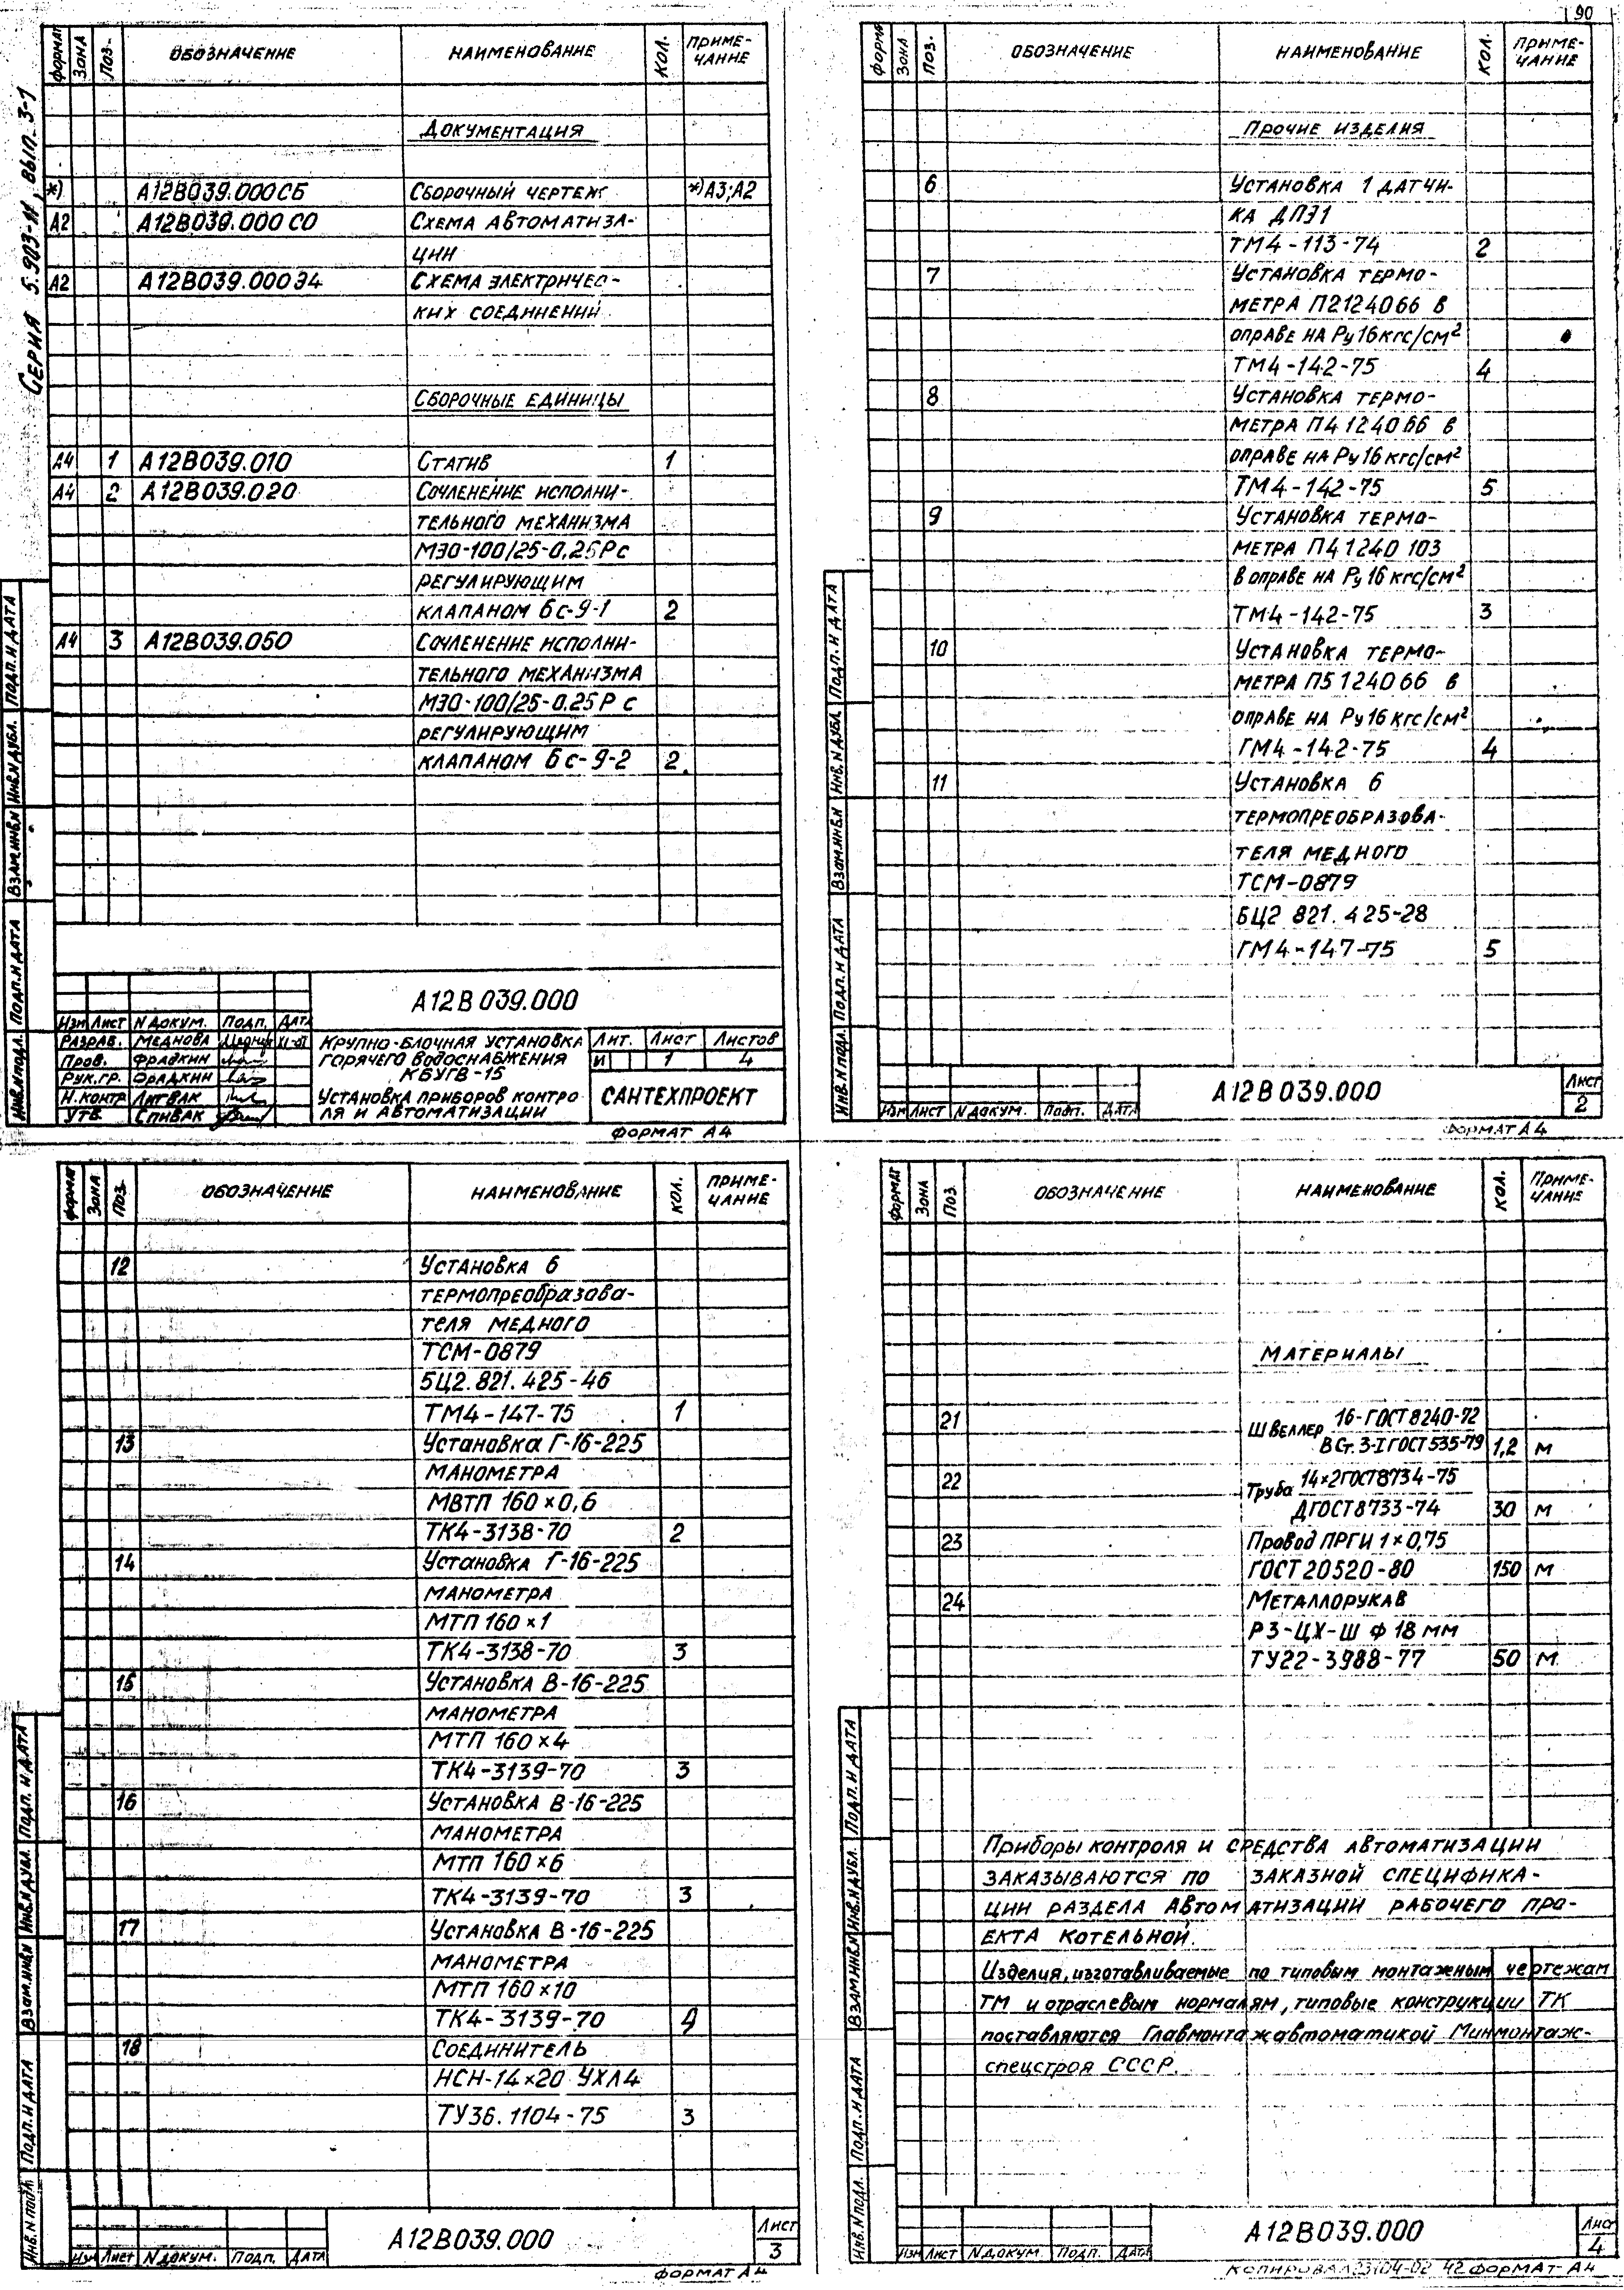 90
СЕРИЯ 5.903-11, ВЫП. 3-1
ФОРМАТ ЗОНА ПОЗ. ОБОЗНАЧЕНИЕ НАИМЕНОВАНИЕ КОЛ. ПРИМЕ-
ЧАНИЕ
ДОКУМЕНТАЦИЯ
*) А12В039.000СБ СБОРОЧНЫЙ ЧЕРТЕЖ *)А3;А2
А2 А12В039.000СО СХЕМА АВТОМАТИЗА-
ЦИИ
А2 А12В039.000Э4 СХЕМА ЭЛЕКТРИЧЕС-
КИХ СОЕДИНЕНИЙ
СБОРОЧНЫЕ ЕДИНИЦЫ
А4 1 А12В039.010 СТАТИВ 1
А4 2 А12В039.020 СОЧЛЕНЕНИЕ ИСПОЛНИ-
ТЕЛЬНОГО МЕХАНИЗМА
МЭО-100/25-0,25Р с
РЕГУЛИРУЮЩИМ
КЛАПАНОМ 6с-9-1 2
А4 3 А12В039.050 СОЧЛЕНЕНИЕ ИСПОЛНИ-
ТЕЛЬНОГО МЕХАНИЗМА
МЭО-100/25-0.25Р с
РЕГУЛИРУЮЩИМ
КЛАПАНОМ 6с-9-2 2.
ИНВ.N ПОДЛ. ПОДП. И ДАТА ВЗАМ.ИНВ.N ИНВ.N ДУБЛ. ПОДП. И ДАТА
А12В039.000
ИЗМ ЛИСТ N ДОКУМ. ПОДП. ДАТА
РАЗРАБ. МЕДНОВА
ПРОВ. ФРАДКИН
РУК.ГР. ФРАДКИН
Н.КОНТР ЛИТВАК
УТВ. СПИВАК
КРУПНО-БЛОЧНАЯ УСТАНОВКА
ГОРЯЧЕГО ВОДОСНАБЖЕНИЯ
КБУГВ-15
УСТАНОВКА ПРИБОРОВ КОНТРО-
ЛЯ И АВТОМАТИЗАЦИИ
ЛИТ. ЛИСТ ЛИСТОВ
И 1 4
САНТЕХПРОЕКТ
ФОРМАТ А4
ФОРМАТ ЗОНА ПОЗ. ОБОЗНАЧЕНИЕ НАИМЕНОВАНИЕ КОЛ. ПРИМЕ-
ЧАНИЕ
ПРОЧИЕ ИЗДЕЛИЯ
6 УСТАНОВКА 1 ДАТЧИ-
КА ДПЭ1
ТМ4-113-74 2
7 УСТАНОВКА ТЕРМО-
МЕТРА П2124066 В
ОПРАВЕ НА Ру16кгс/см²
ТМ4-142-75 4
8 УСТАНОВКА ТЕРМО-
МЕТРА П4 124066 В
ОПРАВЕ НА Ру16кгс/см²
ТМ4-142-75 5
9 УСТАНОВКА ТЕРМО-
МЕТРА П4 1240 103
В ОПРАВЕ НА Ру16кгс/см²
ТМ4-142-75 3
10 УСТАНОВКА ТЕРМО-
МЕТРА П5 124066 В
ОПРАВЕ НА Ру16кгс/см²
ТМ4-142-75 4
11 УСТАНОВКА 6
ТЕРМОПРЕОБРАЗОВА-
ТЕЛЯ МЕДНОГО
ТСМ-0879
БЦ2 821. 425-28
ТМ4-147-75 5
ИНВ.N ПОДЛ. ПОДП. И ДАТА ВЗАМ.ИНВ.N ИНВ.N ДУБЛ. ПОДП. И ДАТА
ИЗМ ЛИСТ N ДОКУМ. ПОДП. ДАТА
А12В039.000
ЛИСТ
2
ФОРМАТ А4
ФОРМАТ ЗОНА ПОЗ. ОБОЗНАЧЕНИЕ НАИМЕНОВАНИЕ КОЛ. ПРИМЕ-
ЧАНИЕ
12 УСТАНОВКА 6
ТЕРМОПРЕОБРАЗОВА-
ТЕЛЯ МЕДНОГО
ТСМ-0879
5Ц2.821. 425-46
ТМ4-147-75 1
13 УСТАНОВКА Г-16-225
МАНОМЕТРА
МВТП 160×0,6
ТК4-3138-70 2
14 УСТАНОВКА Г-16-225
МАНОМЕТРА
МТП 160×1
ТК4-3138-70 3
15 УСТАНОВКА В-16-225
МАНОМЕТРА
МТП 160×4
ТК4-3139-70 3
16 УСТАНОВКА В-16-225
МАНОМЕТРА
МТП 160×6
ТК4-3139-70 3
17 УСТАНОВКА В-16-225
МАНОМЕТРА
МТП 160×10
ТК4-3139-70 4
18 СОЕДИНИТЕЛЬ
НСН-14×20 УХЛ4
ТУ36.1104-75 3
ИНВ.N ПОДЛ. ПОДП. И ДАТА ВЗАМ.ИНВ.N ИНВ.N ДУБЛ. ПОДП. И ДАТА
ИЗМ ЛИСТ N ДОКУМ. ПОДП. ДАТА
А12В039.000
ЛИСТ
3
ФОРМАТ А4
ФОРМАТ ЗОНА ПОЗ. ОБОЗНАЧЕНИЕ НАИМЕНОВАНИЕ КОЛ. ПРИМЕ-
ЧАНИЕ
МАТЕРИАЛЫ
21 ШВЕЛЛЕР 16-ГОСТ 8240-72
ВСт.3-I ГОСТ 535-79 1,2 М
22 Труба 14×2ГОСТ8734-75
ДГОСТ8733-74 30 М
23 Провод ПРГИ 1×0,75
ГОСТ 20520-80 150 М
24 МЕТАЛЛОРУКАВ
РЗ-ЦХ-Ш Ф 18 мм
ТУ22-3988-77 50 М
ПРИБОРЫ КОНТРОЛЯ И СРЕДСТВА АВТОМАТИЗАЦИИ
ЗАКАЗЫВАЮТСЯ ПО ЗАКАЗНОЙ СПЕЦИФИКА-
ЦИИ РАЗДЕЛА АВТОМАТИЗАЦИИ РАБОЧЕГО ПРО-
ЕКТА КОТЕЛЬНОЙ.
Изделия, изготавливаемые по типовым монтажным чертежам
ТМ и отраслевым нормалям, типовые конструкции ТК
поставляются Главмонтажавтоматикой Минмонтаж-
спецстроя СССР.
ИНВ.N ПОДЛ. ПОДП. И ДАТА ВЗАМ.ИНВ.N ИНВ.N ДУБЛ. ПОДП. И ДАТА
ИЗМ ЛИСТ N ДОКУМ. ПОДП. ДАТА
А12В039.000
ЛИСТ
4
КОПИРОВАЛ 23104-02 42 ФОРМАТ А4